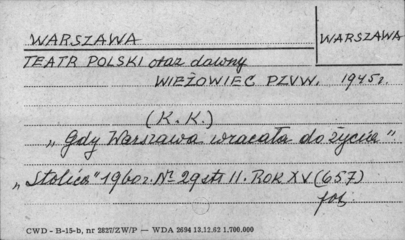 WARSZAWA
WARSZAWA
TEATR POLSKI oraz dawny
WIEŻOWIEC PZUW. 1945r.
(K.K.)
„Gdy Warszawa wracała do życia"
„Stolica" 1960r. Nr 29 str 11. ROK XV (657)
fot.
CWD - B-15-b, nr 2827/ZW/P — WDA 2694 13.12.62 1.700.000